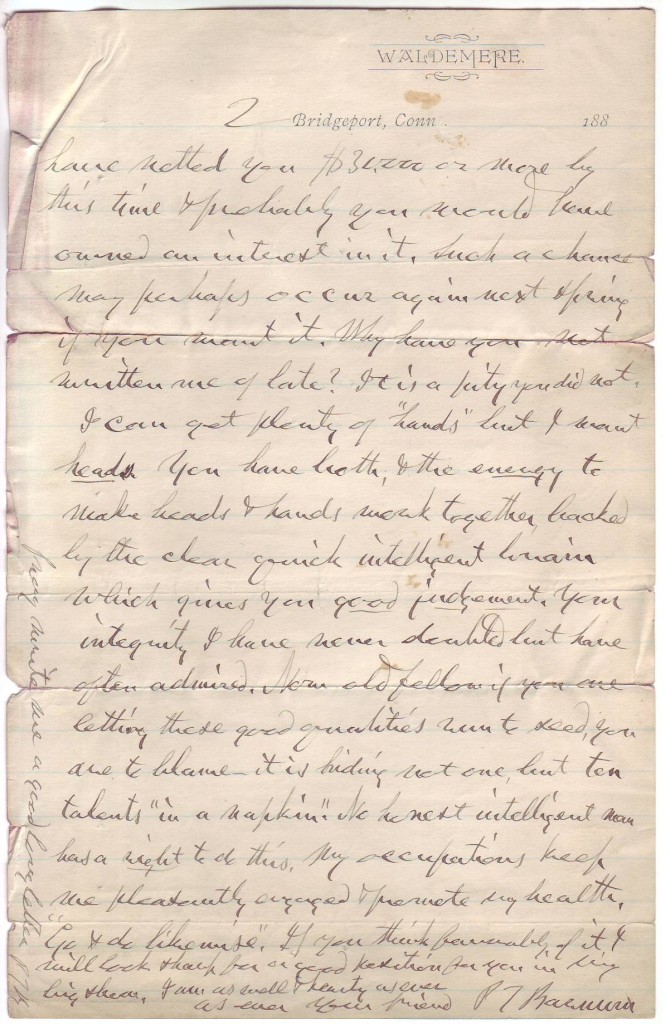 WALDEMERE.
2 Bridgeport, Conn. 188
have netted you $30.000 or more by
this time & probably you would have
owned an interest in it. Such a chance
may perhaps occur again next spring
if you want it. Why have you not
written me of late? It is a pity you did not.
I can get plenty of "hands" but I want
heads. You have both, & the energy to
make heads & hands work together, backed
by the clear quick intelligent brain
which gives you good judgement. Your
integrity I have never doubted but have
often admired. Now old fellow if you are
letting these good qualities run to seed, you
are to blame – it is hiding not one, but ten
talents "in a napkin". No honest intelligent man
has a right to do this. My occupations keep
me pleasantly engaged & promote my health.
"Go & do likewise". If you think favorably of it I
will look sharp for a good position for you in my
big show. I am as well & hearty as ever
as ever your friend P T Barnum
pray write me a good long letter P.T.B.